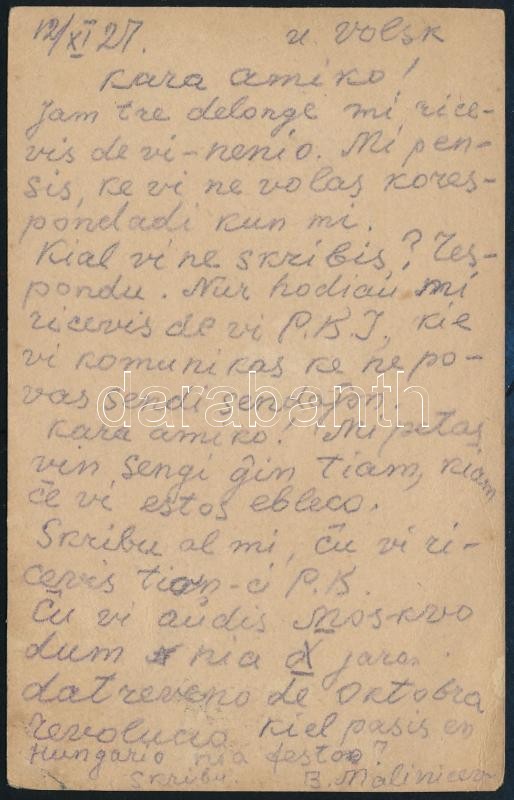 12/XI 27. u Volsk
Kara amiko!
Jam tre delonge mi rice-
vis de vi-nenio. Mi pen-
sis, ke vi ne volas kores-
pondadi kun mi.
Kial vi ne skribis? Res-
pondu. Nur hodiaŭ mi
ricevis de vi P.K.I, kie
vi komunikas ke ne po-
vas sendi
darabanth.com
Kara amiko! Mi petas
vin sengi ĝin tiam, kiam
ĉe vi estos ebleco.
Skribu al mi, ĉu vi ri-
cevis tion-ci P.K.
Ĉu vi aŭdis Moskvo
dum nia X jaran
datreveno de Oktobra
revolucio kiel pasis en
Hungario nia festo?
Skribu. B. Malinicev